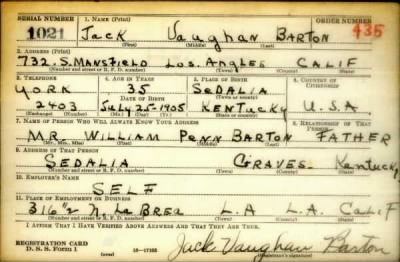 SERIAL NUMBER 1. NAME (Print) ORDER NUMBER
1021 Jack Vaughan BARTON 435
(First) (Middle) (Last)
2. ADDRESS (Print)
732. S. MANSFIELD LOS. ANGLES CALIF
(Number and street or R. F. D. number) (Town) (County) (State)
3. TELEPHONE 4. AGE IN YEARS 5. PLACE OF BIRTH 6. COUNTRY OF CITIZENSHIP
YORK 35 SEDALIA
DATE OF BIRTH (Town or county)
2403 July 25-1905 KENTUCKY U.S.A
(Exchange) (Number) (Mo.) (Day) (Yr.) (State or country)
7. NAME OF PERSON WHO WILL ALWAYS KNOW YOUR ADDRESS 8. RELATIONSHIP OF THAT PERSON
MR. WILLIAM PENN BARTON FATHER
(Mr., Mrs., Miss) (First) (Middle) (Last)
9. ADDRESS OF THAT PERSON
SEDALIA GRAVES Kentucky
(Number and street or R. F. D. number) (Town) (County) (State)
10. EMPLOYER'S NAME
SELF
11. PLACE OF EMPLOYMENT OR BUSINESS
316½ N LA BREA L.A L.A. CALIF
(Number and street or R. F. D. number) (Town) (County) (State)
I AFFIRM THAT I HAVE VERIFIED ABOVE ANSWERS AND THAT THEY ARE TRUE.
REGISTRATION CARD
D. S. S. Form 1 (over) 16-17105 Jack Vaughan Barton
(Registrant's signature)